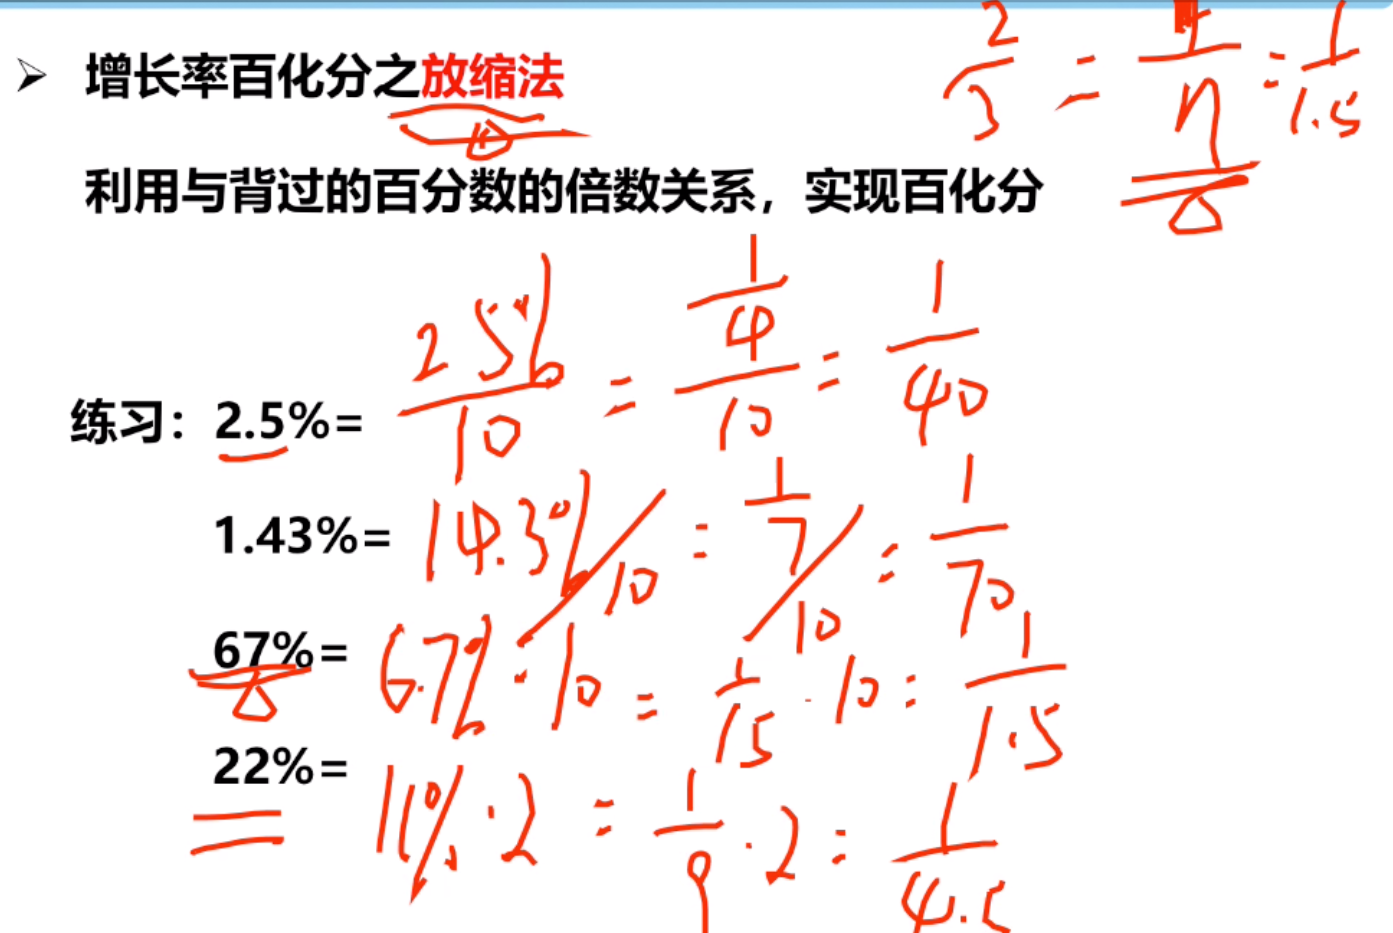 增长率百化分之放缩法
2/3 = 1/n = 1/1.5
利用与背过的百分数的倍数关系，实现百化分
练习：2.5%= 25%/10 = 1/4/10 = 1/40
1.43%= 14.3%/10 = 1/7/10 = 1/70
67%= 6.7%·10 = 1/15·10 = 1/1.5
22%= 11%·2 = 1/9·2 = 1/4.5